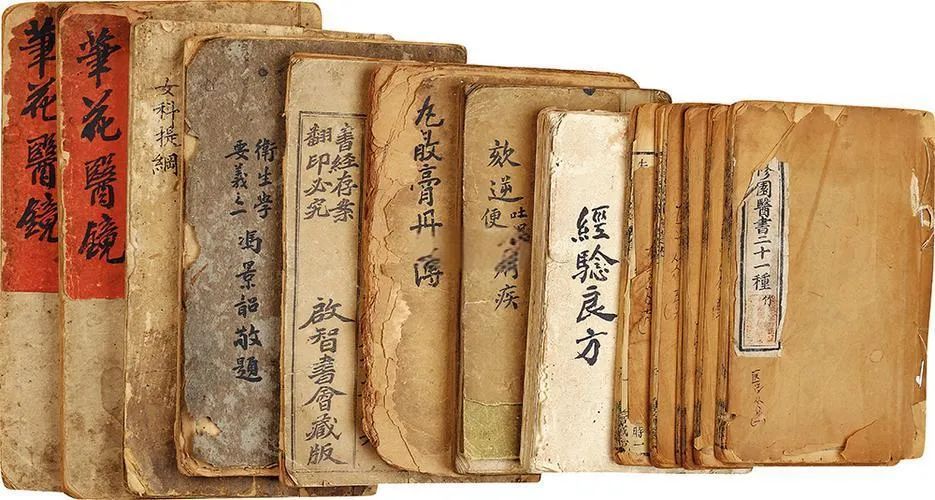 筆花醫鏡
筆花醫鏡
女科提綱
衛生學
要義之一
馮景韶敬題
書經存案
翻印必究
啟智書會藏版
丸散膏丹
欬逆
吐
便
疾
經驗良方
修園醫書二十一種